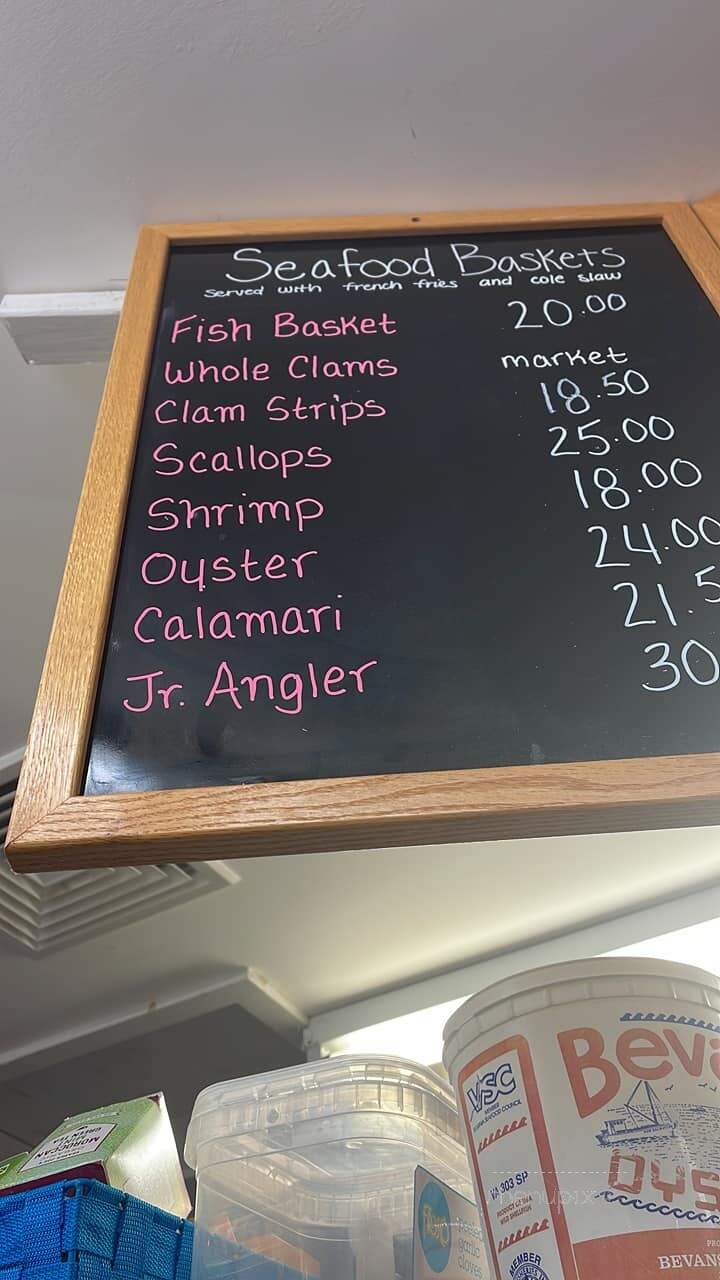 Seafood Baskets
served with french fries and cole slaw
Fish Basket 20.00
Whole Clams market
Clam Strips 18.50
Scallops 25.00
Shrimp 18.00
Oyster 24.00
Calamari 21.5
Jr. Angler 30
MOROCCAN
VSC
MEMBER
VA 303 SP
MEMBER
Beva
OYS
BEVANS
garlic
cloves
menupix